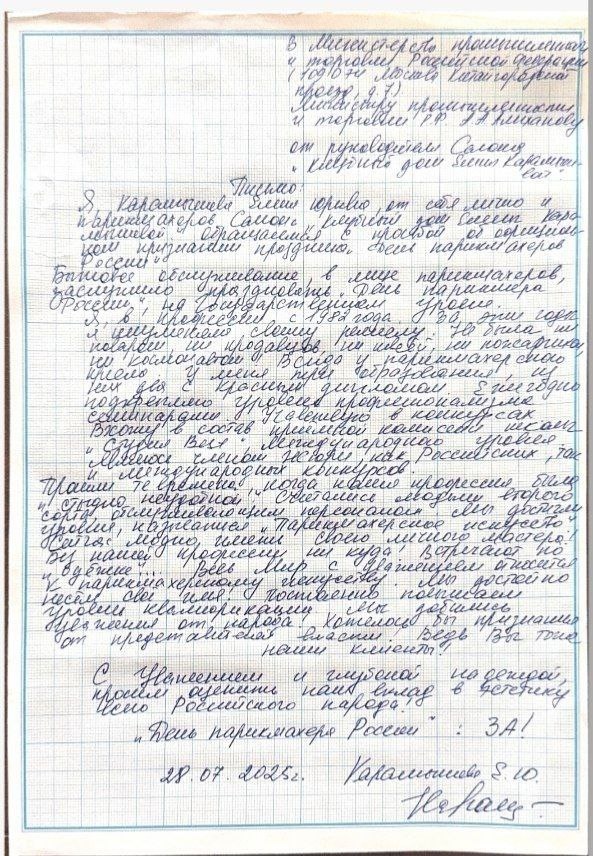 В Министерство промышленности
и торговли Российской Федерации
(109074 Москва Китайгородский
проезд, д.7)
Министру промышленности
и торговли РФ А.А. Алиханову
от руководителя Салона
"Клубный дом Елены Карамыше-
вой"
Письмо.
Я, Карамышева Елена Юрьевна, от себя лично и
парикмахеров Салона "Клубный дом Елены Кара-
мышевой" обращаемся с просьбой об официаль-
ном признании праздника "День парикмахеров
России"
Бытовое обслуживание, в лице парикмахеров,
заслужило праздновать "День парикмахера
России", на Государственном уровне.
Я, в профессии, с 1982 года. За эти годы
я, не изменяла своему ремеслу. Не была ни
поваром, ни продавцом, ни няней, ни пожарным,
ни космонавтом. Всегда у парикмахерского
кресла. У меня три образования, из
них два с красным дипломом. Ежегодно
подкрепляю уровень профессионализма
семинарами. Участвую в конкурсах
Вхожу в состав приёмной комиссии школы
"Студия Веге" Международного уровня.
Являюсь членом жюри, как Российских, так
и Международных конкурсов.
Прошли те времена, когда наша профессия была
"стыдно неуютной". Считались людьми второго
сорта, обслуживающим персоналом. Мы достигли
уровня, называться "Парикмахерское искусство"
Сейчас модно, иметь своего личного мастера!
Без нашей профессии, ни куда! Встречают по
"одёжке"... Весь мир с уважением относится
к парикмахерскому искусству. Мы достойно
несём своё имя! Постоянно повышаем
уровни квалификации. Мы добились
уважения от народа! Хотелось бы признания
от представителей власти! Ведь Вы тоже
наши клиенты!
С Уважением и глубокой надеждой,
просим оценить наш вклад в эстетику
Российского народа!
"День парикмахера России" : ЗА!
28.07.2025г. Карамышева Е.Ю.